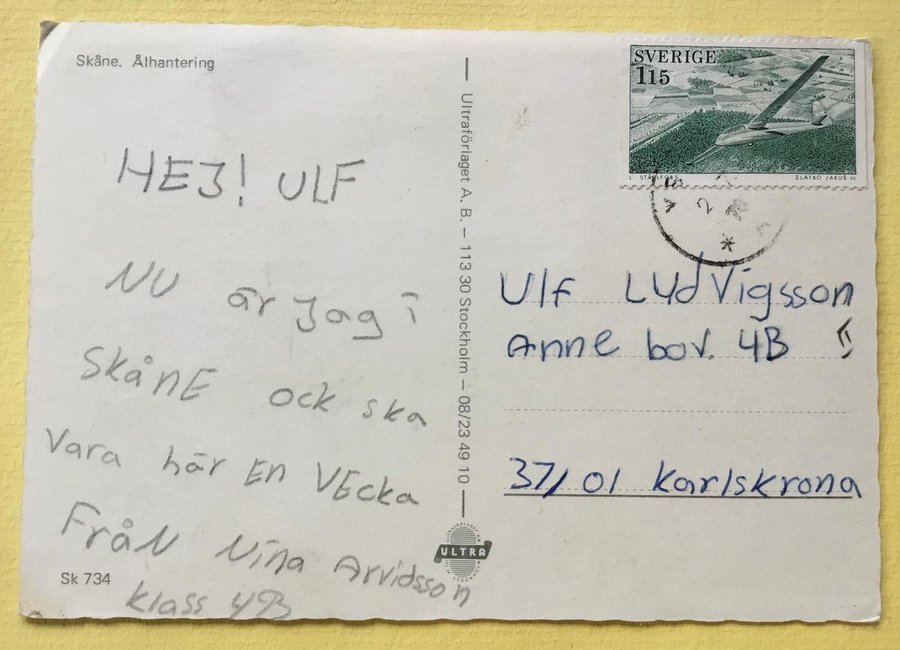 Skåne. Ålhantering
HEJ! ULF
NU är Jag i
SKÅNE ock ska
Vara här EN VEcka
FRåN Nina Arvidsson
klass 4B
Sk 734
Ultraförlaget A. B. – 113 30 Stockholm – 08/23 49 10
ULTRA
SVERIGE
115
L. STÅLFORS
ZLATKO JAKUŠ sc
Ulf LUdVigsson
Anne bov. 4B
371 01 Karlskrona